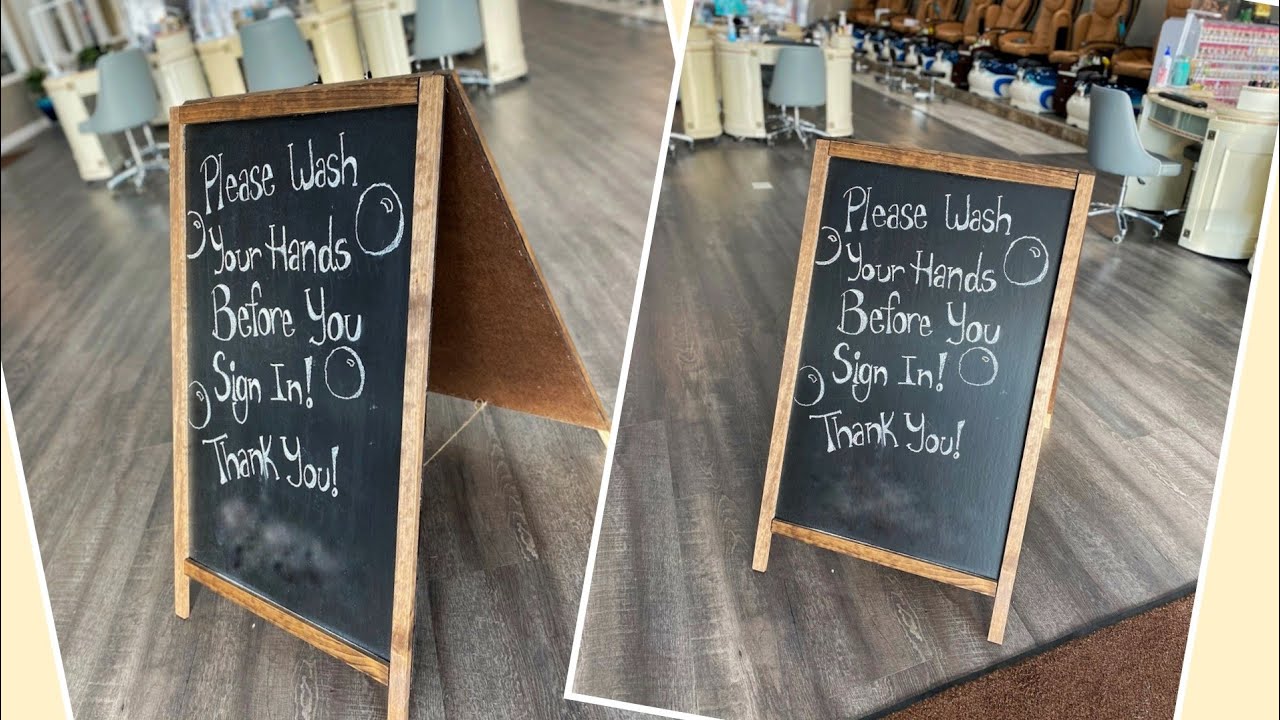 Please Wash
Your Hands
Before You
Sign In!
Thank You!
Please Wash
Your Hands
Before You
Sign In!
Thank You!